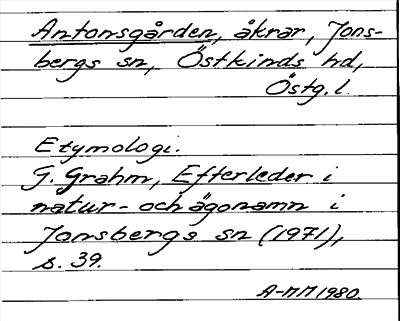 Antonsgården, åkrar, Jons-
bergs sn, Östkinds hd,
Östg.l.
Etymologi.
G. Grahm, Efterleder i
natur- och ägonamn i
Jonsbergs sn (1971),
s. 39.
A-MM 1980.